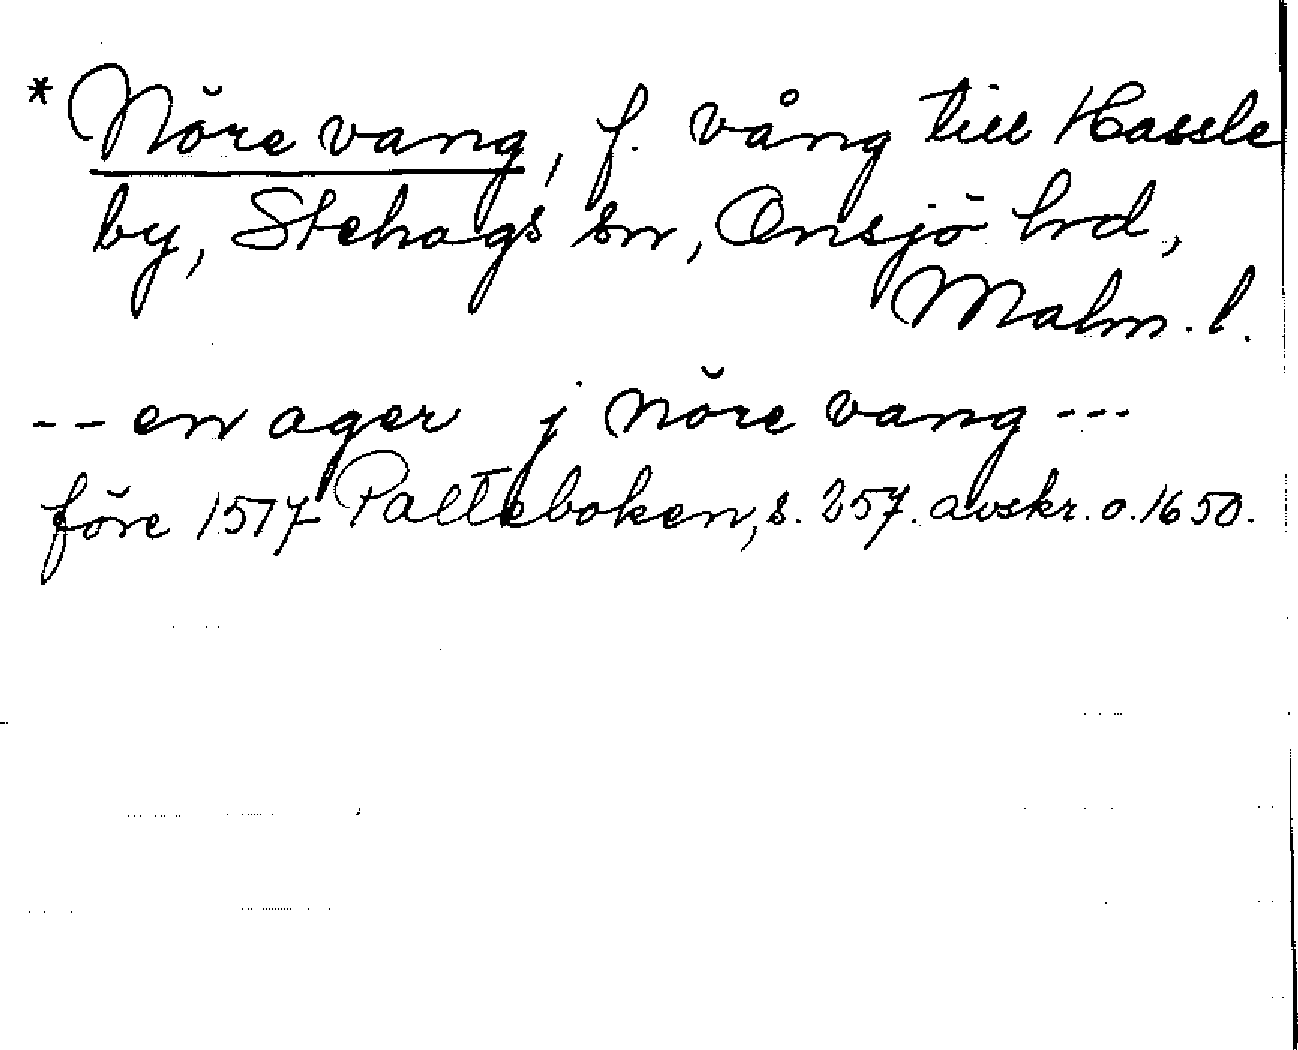 * Nŏre vang, f. vång till Hassle
by, Stehags sn, Onsjö hd,
Malm. l.
-- en ager j nŏre vang ---
före 1517 Palteboken, s. 257. avskr. o. 1650.